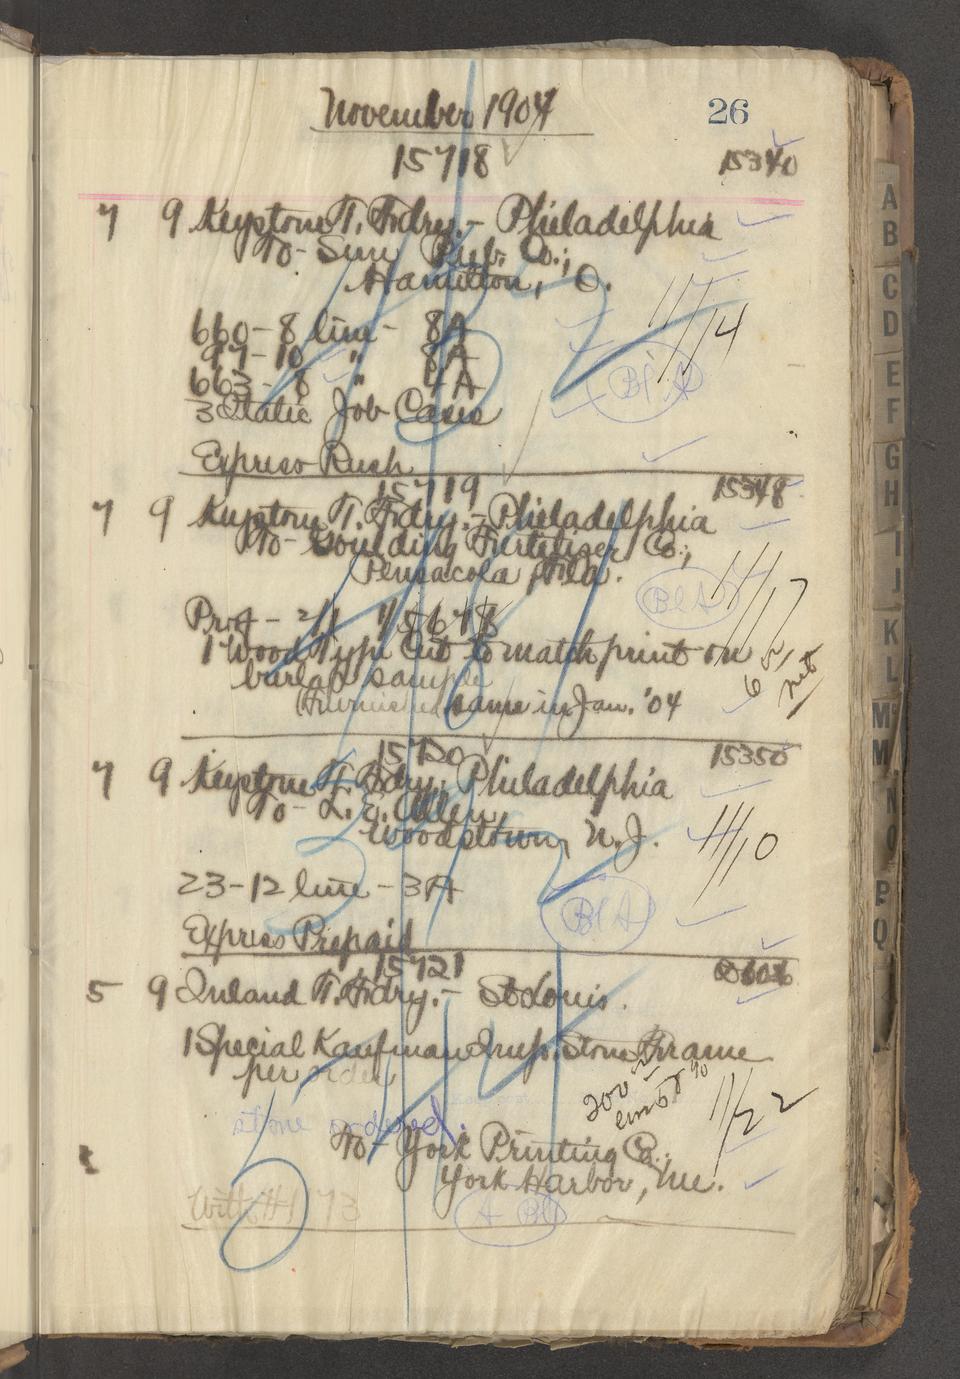 November 1904
26
15718
15340
7 9 Keystone T. Fdry. - Philadelphia
To - Sun Pub. Co.,
Hamilton, O.
660 - 8 line - 8A
97 - 10 " 8A
663 - 8 " 4A
3 Italic Job Cases
11/14
Bl A
Express Rush
15719
15348
7 9 Keystone T. Fdry. - Philadelphia
To - Goulding Fertilizer Co.,
Pensacola, Fla.
Bl A
11/17
1 Wood Type Cut to match print on
burlap sample
(Furnished same in Jan. '04
net
15720
15350
7 9 Keystone T. Fdry. Philadelphia
To - L. E. Allen,
Woodstown, N. J.
11/10
23 - 12 line - 3A
Bl A
Express Prepaid
15721
5 9 Inland T. Fdry. - St Louis.
1 Special Kaufman Imp. Stone Frame
per order
11/22
stone ordered.
To - York Printing Co.,
York Harbor, Me.
A Bl
A
B
C
D
E
F
G
H
I
J
K
L
M
M
N
O
P
Q